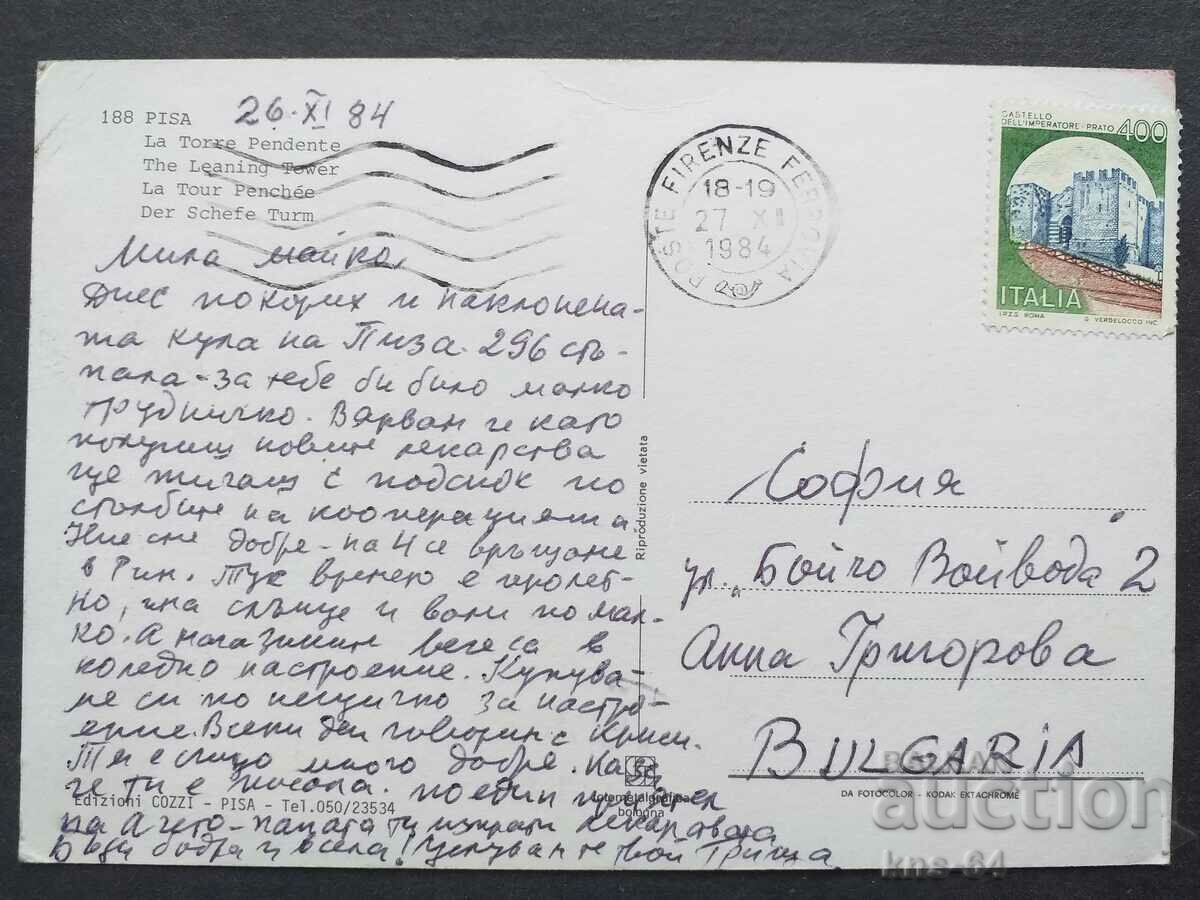 188 PISA
26.XI 84
La Torre Pendente
The Leaning Tower
La Tour Penchée
Der Schefe Turm
POSTE FIRENZE FERROVIA
18-19
27 XI
1984
CASTELLO
DELL'IMPERATORE-PRATO
400
ITALIA
I.P.Z.S. ROMA
G. VERDELOCCO INC.
Мила майко,
Днес покорих и наклонена-
та кула на Пиза. 296 стъ-
пала - за тебе би било малко
трудничко. Вярвам че като
получиш новите лекарства
ще тичаш с подскок по
стълбите на кооперацията
Ние сме добре - на 4 се връщаме
в Рим. Тук времето е пролет-
но, има слънце и вали по мал-
ко. А магазините вече са в
коледно настроение. Купува-
ме си по нещичко за настро-
ение. Всеки ден говорим с Криси.
Тя е също много добре.
че ти е по един
на Ачето - папата ти изпрати лекарствата
Бъди бодра и весела! Целувам те твой Гриша
Riproduzione vietata
София
ул. „Бойчо Войвода 2
Анна Григорова
BULGARIA
DA FOTOCOLOR - KODAK EKTACHROME
Edizioni COZZI - PISA - Tel. 050/23534
fotometalgrafica
bologna
BALKAN
auction
kns-64